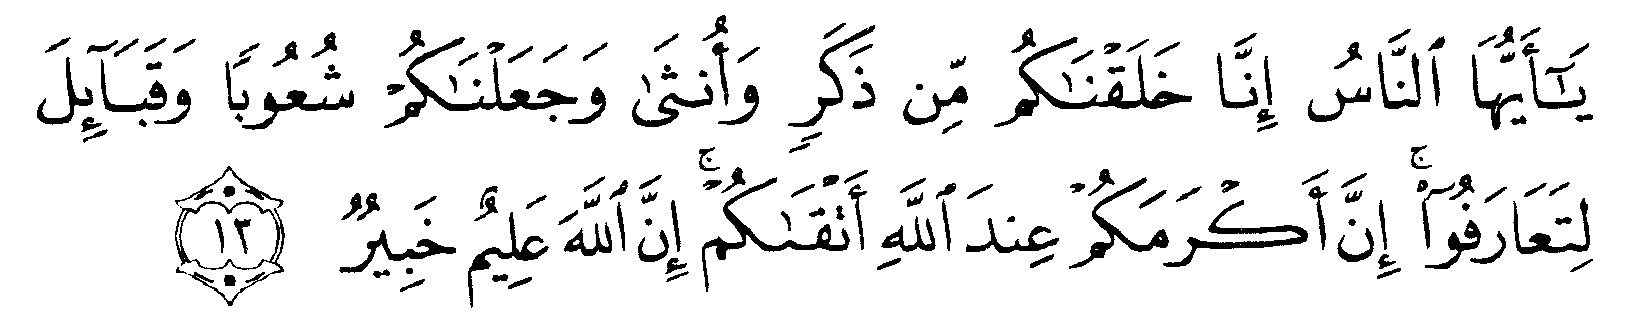 يَـٰٓأَيُّهَا ٱلنَّاسُ إِنَّا خَلَقْنَـٰكُم مِّن ذَكَرٍ وَأُنثَىٰ وَجَعَلْنَـٰكُمْ شُعُوبًا وَقَبَآئِلَ
لِتَعَارَفُوٓا۟ ۚ إِنَّ أَكْرَمَكُمْ عِندَ ٱللَّهِ أَتْقَىٰكُمْ ۚ إِنَّ ٱللَّهَ عَلِيمٌ خَبِيرٌ ١٣